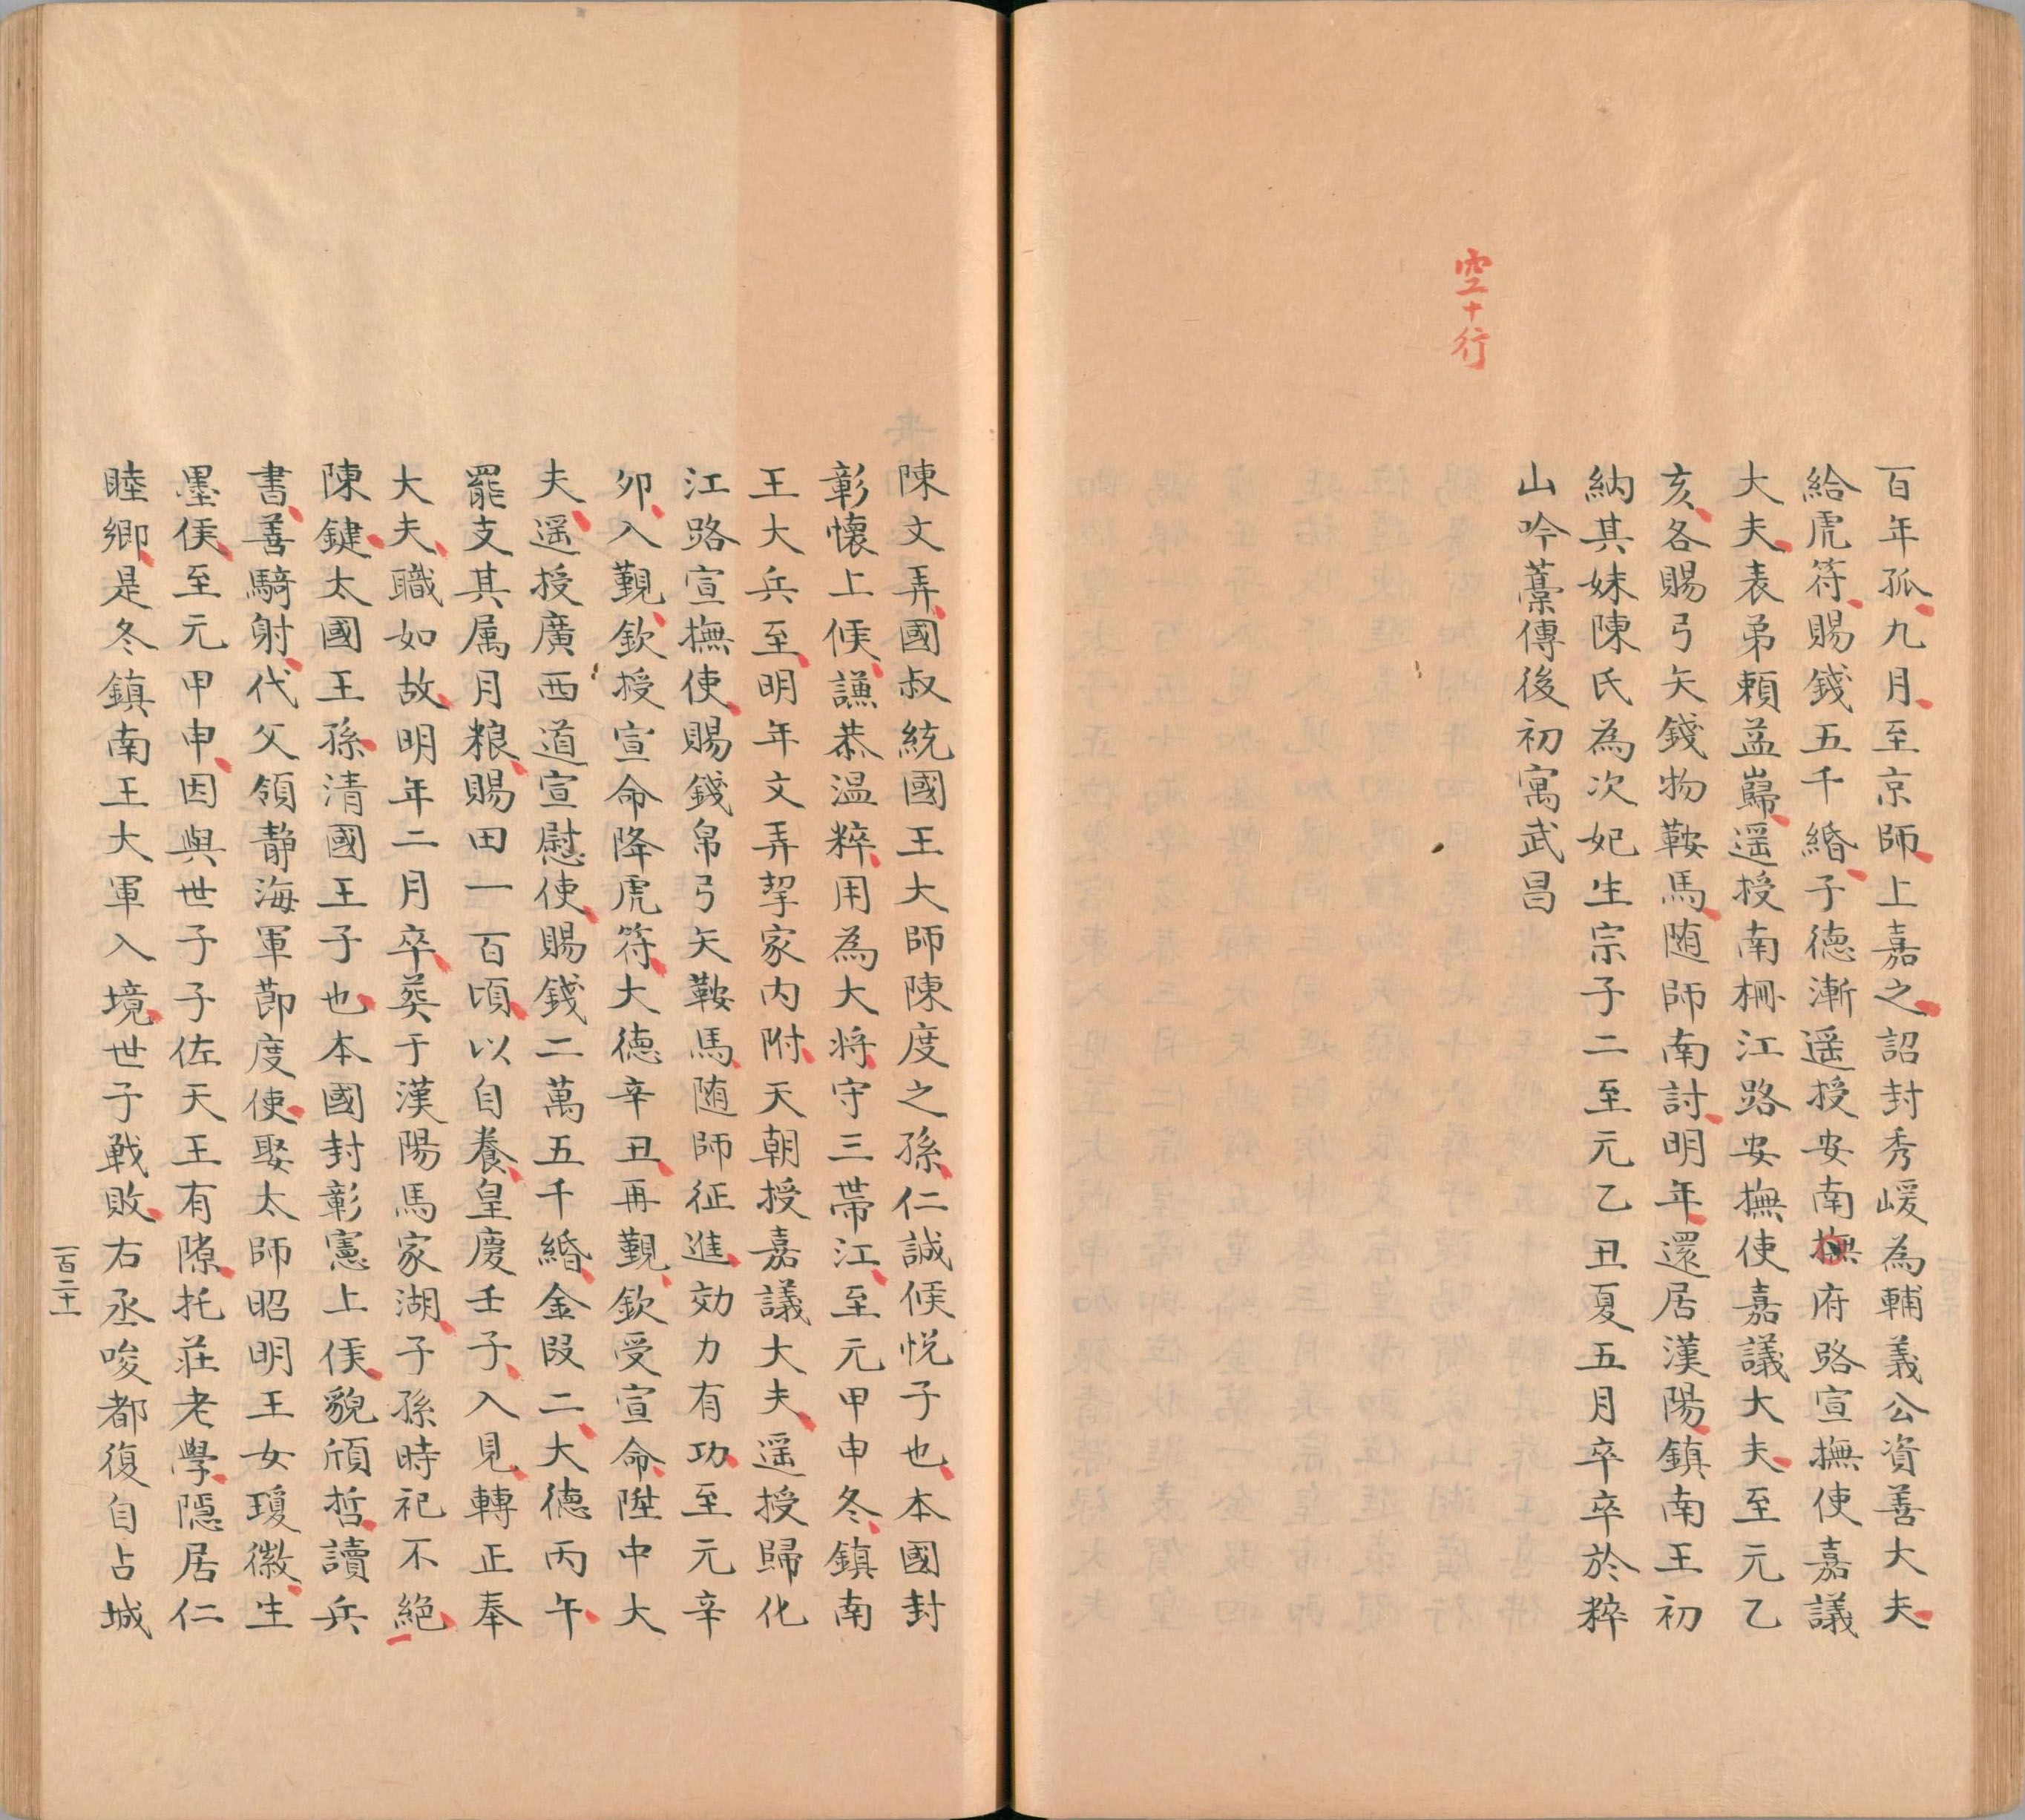 百年孤九月至京師上嘉之詔封秀嵈為輔義公資善大夫
給虎符賜錢五千緡子德漸遥授安南撫府路宣撫使嘉議
大夫表弟賴益巋遥授南柵江路安撫使嘉議大夫至元乙
亥各賜弓矢錢物鞍馬随師南討明年還居漢陽鎮南王初
納其妹陳氏為次妃生宗子二至元乙丑夏五月卒卒於粹
山吟藁傳後初寓武昌
空十行
陳文弄國叔統國王大師陳度之孫仁誠候悦子也本國封
彰懷上候謙恭温粹用為大将守三帶江至元甲申冬鎮南
王大兵至明年文弄挈家内附天朝授嘉議大夫遥授歸化
江路宣撫使賜錢帛弓矢鞍馬随師征進効力有功至元辛
卯入覲欽授宣命降虎符大德辛丑再覲欽受宣命陞中大
夫遥授廣西道宣慰使賜錢二萬五千緡金段二大德丙午
罷支其属月粮賜田一百頃以自養皇慶壬子入見轉正奉
大夫職如故明年二月卒葬于漢陽馬家湖子孫時祀不絶
陳鍵太國王孫清國王子也本國封彰憲上侯貌頎哲讀兵
書善騎射代父領静海軍節度使娶太師昭明王女瓊徽生
墨侯至元甲申因與世子子佐天王有隙托莊老學隱居仁
睦鄉是冬鎮南王大軍入境世子戦敗右丞唆都復自占城
一百二十一